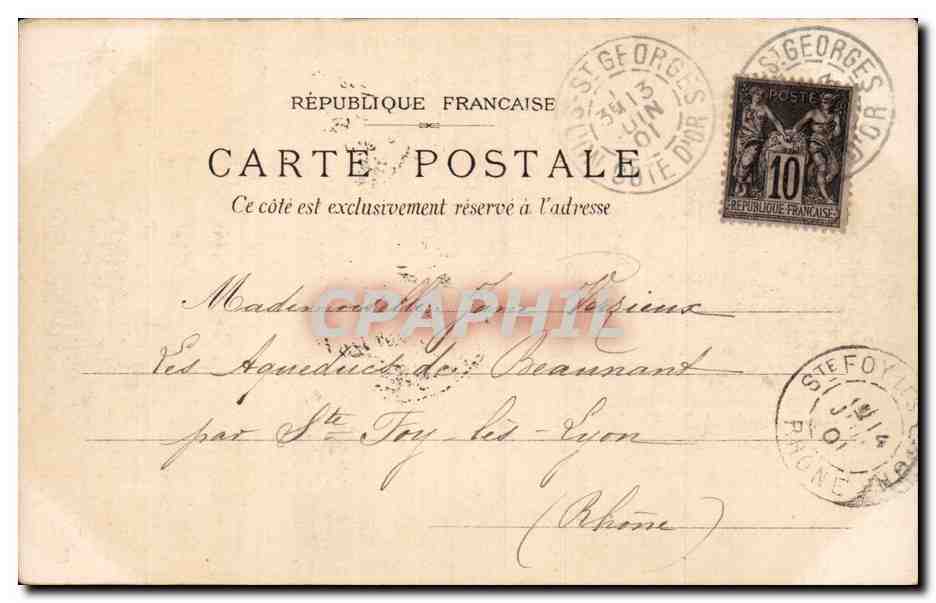 RÉPUBLIQUE FRANCAISE
CARTE POSTALE
Ce côté est exclusivement réservé à l'adresse
ST GEORGES
13
JUIN
01
CÔTE D'OR
ST GEORGES
D'OR
POSTE
10
REPUBLIQUE FRANÇAISE
CPAPHIL
Mademoiselle
Les Aqueducs de Beaunant
par Ste Foy-lès-Lyon
(Rhône)
STE FOY LES LYON
14
01
RHONE